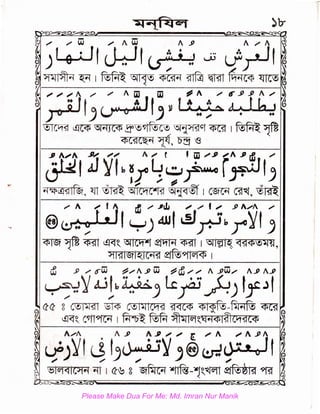 মনযিল
১৮
الْعَرْشِ يُغْشِي الَّيْلَ النَّهَارَ
সমাসীন হন। তিনিই আবৃত করেন রাত্রি দ্বারা দিনকে যাতে
يَطْلُبُهُ حَثِيْثًا وَّالشَّمْسَ وَالْقَمَرَ
তাদের একে অন্যকে দ্রুতগতিতে অনুসরণ করে। তিনিই সৃষ্টি
করেছেন সূর্য, চন্দ্র ও
وَالنُّجُوْمَ مُسَخَّرٰتٍۭ بِاَمْرِهٖ اَلَا لَهُ الْخَلْقُ
নক্ষত্ররাজি, যা তাঁরই আদেশের অনুবর্তী। জেনে রেখ, তাঁরই
وَالْاَمْرُ تَبٰرَكَ اللّٰهُ رَبُّ الْعٰلَمِيْنَ
কাজ সৃষ্টি করা এবং আদেশ প্রদান করা। আল্লাহ্ বরকতময়,
সারাজাহানের প্রতিপালক।
اُدْعُوْا رَبَّكُمْ تَضَرُّعًا وَّخُفْيَةً اِنَّهٗ لَا يُحِبُّ
৫৫ : তোমরা ডাক তোমাদের রবকে কাকুতি-মিনতি করে
এবং গোপনে। নিশ্চয় তিনি সীমালংঘনকারীদেরকে
الْمُعْتَدِيْنَ وَلَا تُفْسِدُوْا فِى الْاَرْضِ
ভালবাসেন না। ৫৬ : জমিনে শান্তি-শৃংখলা প্রতিষ্ঠার পর
Please Make Dua For Me: Md. Imran Nur Manik